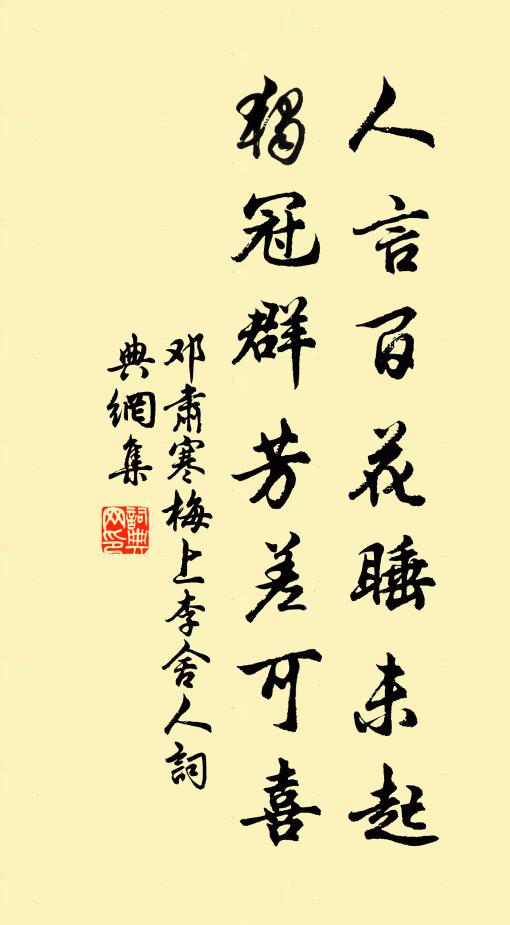 人言百花睡未起
獨冠群芳差可喜
邓肅寒梅上李舍人詞
典網集
詞典
网印